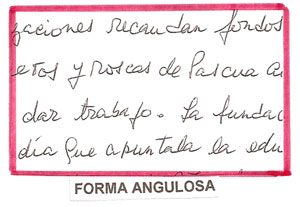 zaciones recaudan fondos
etos y roscas de Pascua a
dar trabajo. La fundac
día que apuntala la edu
FORMA ANGULOSA